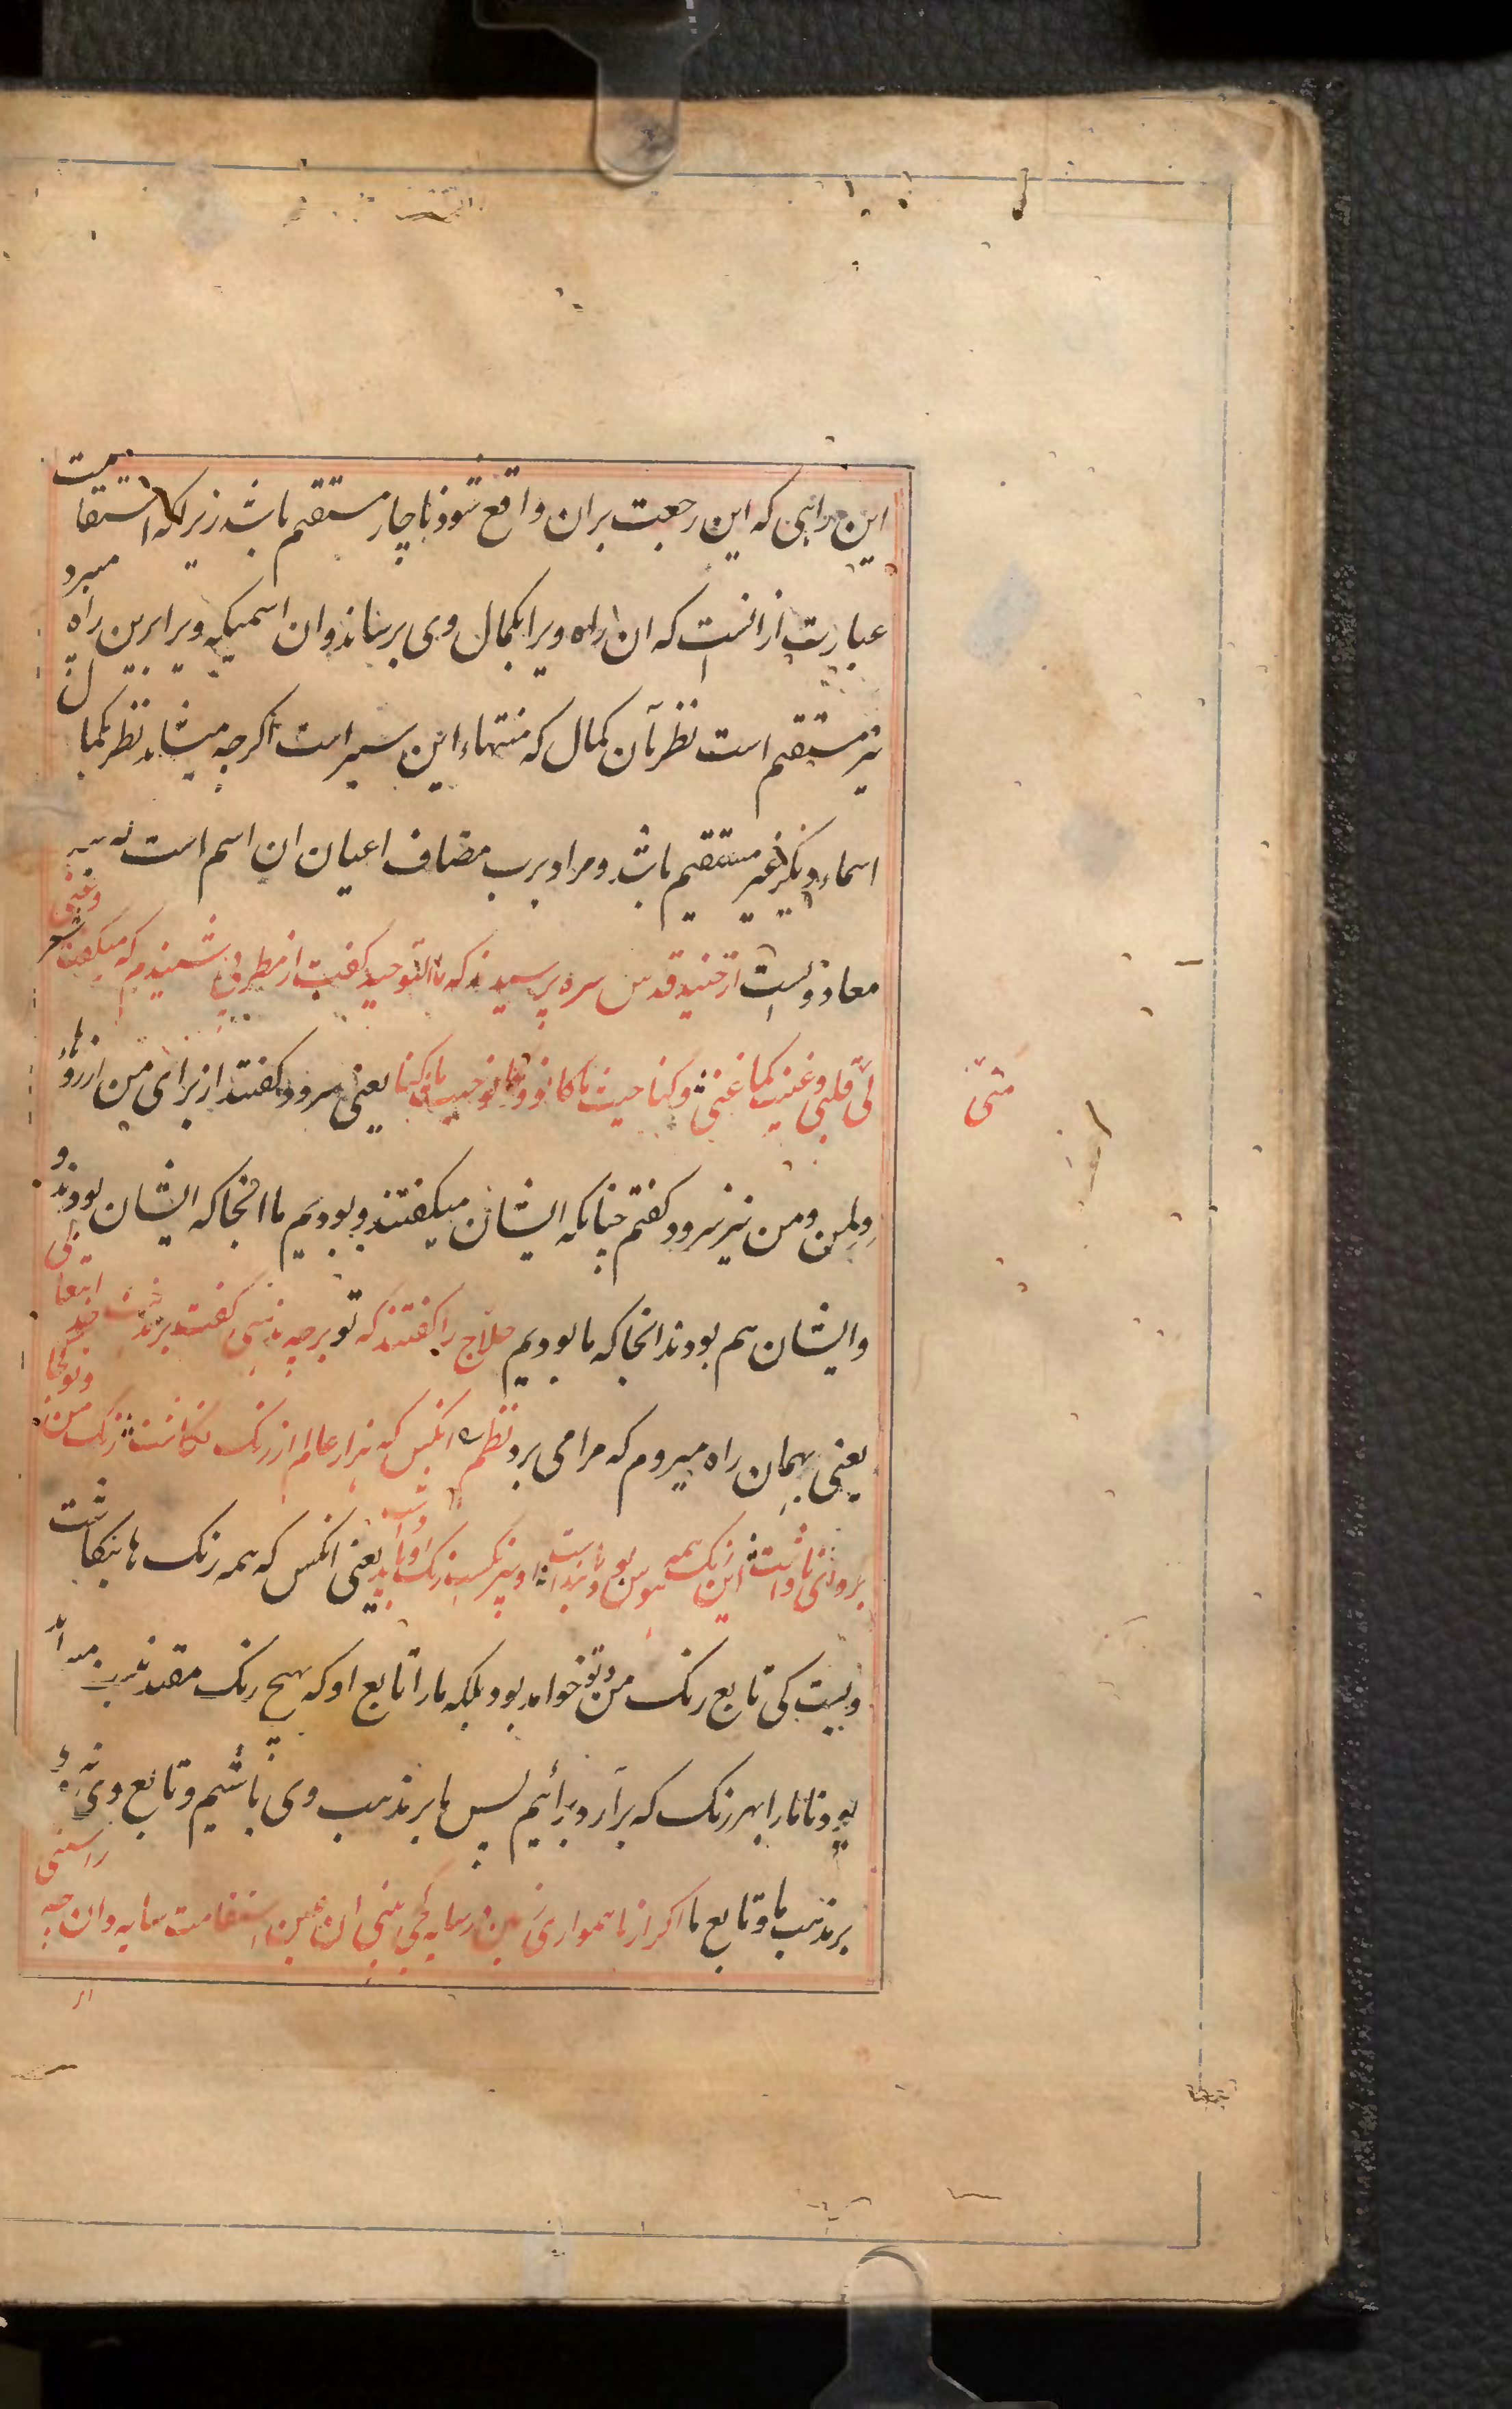 این راهی که این رجعت بران واقع شود ناچار مستقیم باشد زیراکه استقامت
عبارت ازانست که ان راه ویرا بکمال وی برساند وان اسمیکه ویرا برین راه میبرد
نیز مستقیم است نظر بآن کمال که منتهاء این سیر است اگرچه میشاید نظر بکمال
اسماء دیگر غیر مستقیم باشد ومراد برب مضاف اعیان ان اسم است که
معاد ویست از جنید قدس سره پرسیدند که ما التوحید کفت از مطربی شنیدم که میکفت شعر وغنی
لی قلبی وغنیت کما غنی وکنا حیث ما کانوا وکانوا حیث ما کنا یعنی سرود کفتند از برای من ارزوهاء
دلمن ومن نیز سرود کفتم چنانکه ایشان میکفتند وبودیم ما انجا که ایشان بودند و
وایشان هم بودند انجا که ما بودیم حلاج را کفتند که تو برچه مذهبی کفت بر مذهب خدایتعالی
یعنی بهمان راه میروم که مرا می برد نظم انکس که هزار عالم از رنک نکاشت رنک من وتو کجا
برد ای ناداشت این رنک همه هوس بود یا پنداشت او بیرنکست رنک او باید داشت یعنی انکس که همه رنک ها بنکاشت
ویست کی تابع رنک من وتو خواهد بود بلکه مارا تابع او که بهیچ رنک مقید نیست
بود تا مارا بهر رنک که برآرد برائیم پس ما بر مذهب وی باشیم وتابع وی نه وی
بر مذهب ما وتابع ما اکر از ناهمواری زمین در سایه کجی بینی ان عین استقامت سایه دان چه راستی
منی